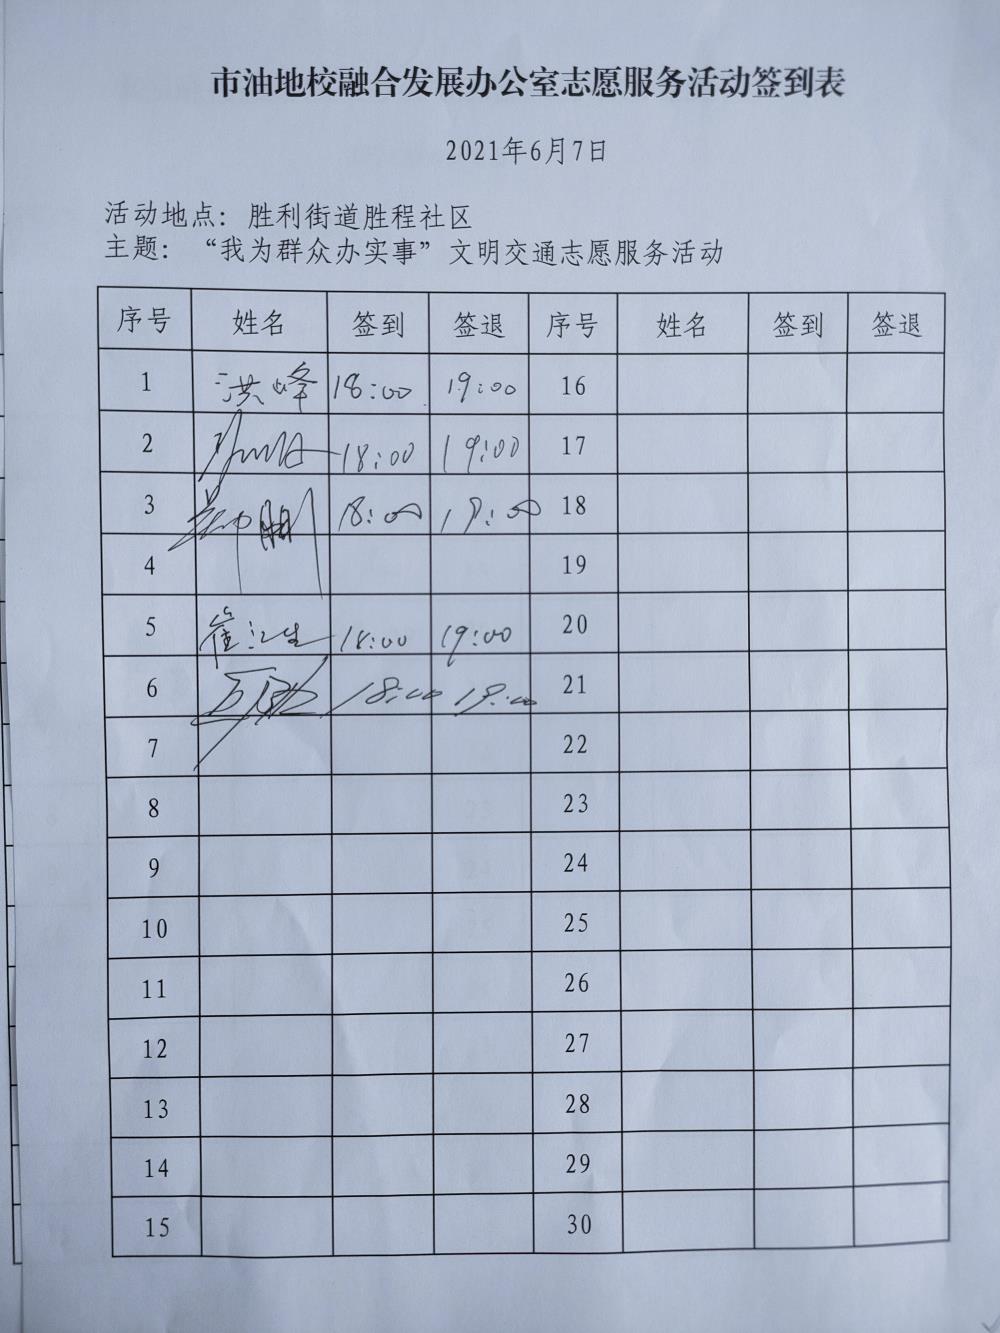 市油地校融合发展办公室志愿服务活动签到表
2021年6月7日
活动地点：胜利街道胜程社区
主题：“我为群众办实事”文明交通志愿服务活动
序号 姓名 签到 签退 序号 姓名 签到 签退
1 洪峰 18:00 19:00 16
2 18:00 19:00 17
3 18:00 19:00 18
4 19
5 崔江生 18:00 19:00 20
6 18:00 19:00 21
7 22
8 23
9 24
10 25
11 26
12 27
13 28
14 29
15 30